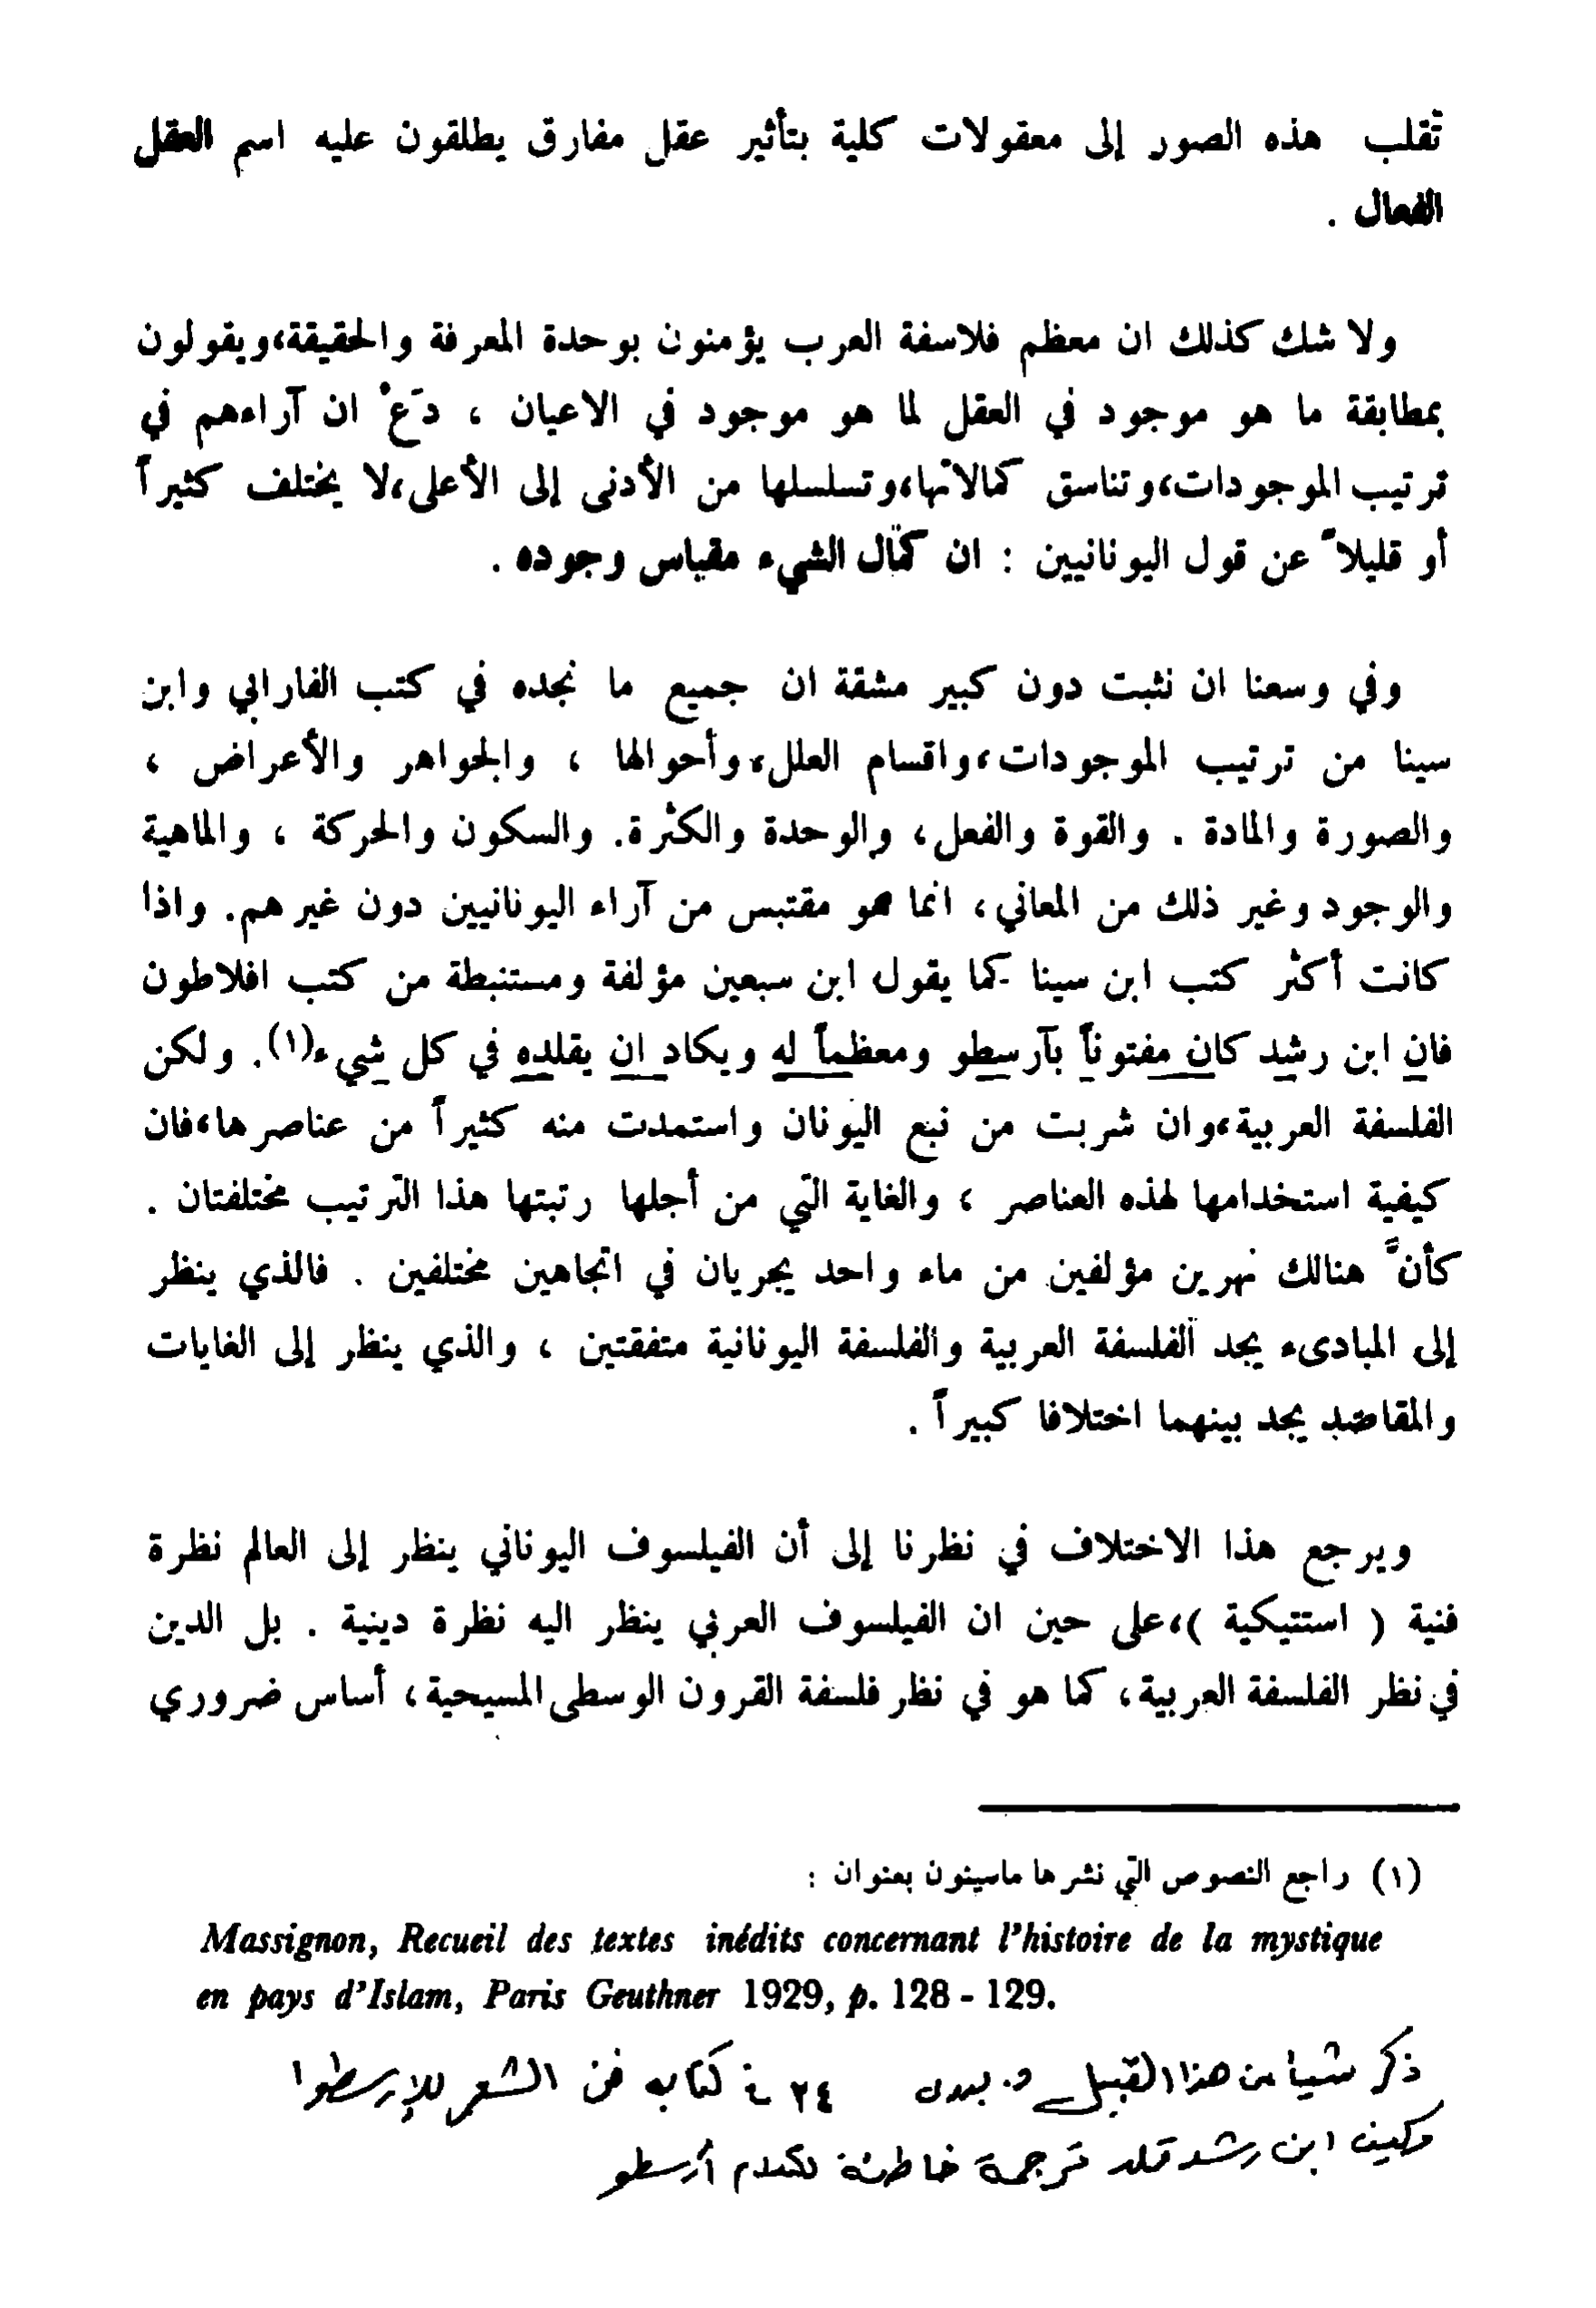 تُقلب هذه الصور إلى معقولات كلية بتأثير عقل مفارق يطلقون عليه اسم العقل
الفعال .
ولا شك كذلك ان معظم فلاسفة العرب يؤمنون بوحدة المعرفة والحقيقة،ويقولون
بمطابقة ما هو موجود في العقل لما هو موجود في الاعيان ، دَعْ ان آراءهم في
ترتيب الموجودات،وتناسق كمالاتها،وتسلسلها من الأدنى إلى الأعلى،لا يختلف كثيراً
أو قليلاً عن قول اليونانيين : ان كمال الشيء مقياس وجوده .
وفي وسعنا ان نثبت دون كبير مشقة ان جميع ما نجده في كتب الفارابي وابن
سينا من ترتيب الموجودات،واقسام العلل،وأحوالها ، والجواهر والأعراض ،
والصورة والمادة . والقوة والفعل، والوحدة والكثرة. والسكون والحركة ، والماهية
والوجود وغير ذلك من المعاني، انما هو مقتبس من آراء اليونانيين دون غيرهم. واذا
كانت أكثر كتب ابن سينا كما يقول ابن سبعين مؤلفة ومستنبطة من كتب افلاطون
فان ابن رشد كان مفتوناً بآرسطو ومعظماً له ويكاد ان يقلده في كل شيء(١). ولكن
الفلسفة العربية،وان شربت من نبع اليونان واستمدت منه كثيراً من عناصرها،فان
كيفية استخدامها لهذه العناصر ، والغاية التي من أجلها رتبتها هذا الترتيب مختلفتان .
كأنَّ هنالك نهرين مؤلفين من ماء واحد يجريان في اتجاهين مختلفين . فالذي ينظر
إلى المبادىء يجد الفلسفة العربية والفلسفة اليونانية متفقتين ، والذي ينظر إلى الغايات
والمقاصد يجد بينهما اختلافا كبيراً .
ويرجع هذا الاختلاف في نظرنا إلى أن الفيلسوف اليوناني ينظر إلى العالم نظرة
فنية ( استتيكية )،على حين ان الفيلسوف العربي ينظر اليه نظرة دينية . بل الدين
في نظر الفلسفة العربية، كما هو في نظر فلسفة القرون الوسطى المسيحية، أساس ضروري
(١) راجع النصوص التي نشرها ماسينون بعنوان :
Massignon, Recueil des textes inédits concernant l'histoire de la mystique
en pays d'Islam, Paris Geuthner 1929, p. 128 - 129.
ذكر شيئا من هذا القبيل د. بدوى ٢٤ في كتابه فن الشعر للإرسطوا
وكيف ابن رشد قلد ترجمة خاطئة لكلام أرسطو